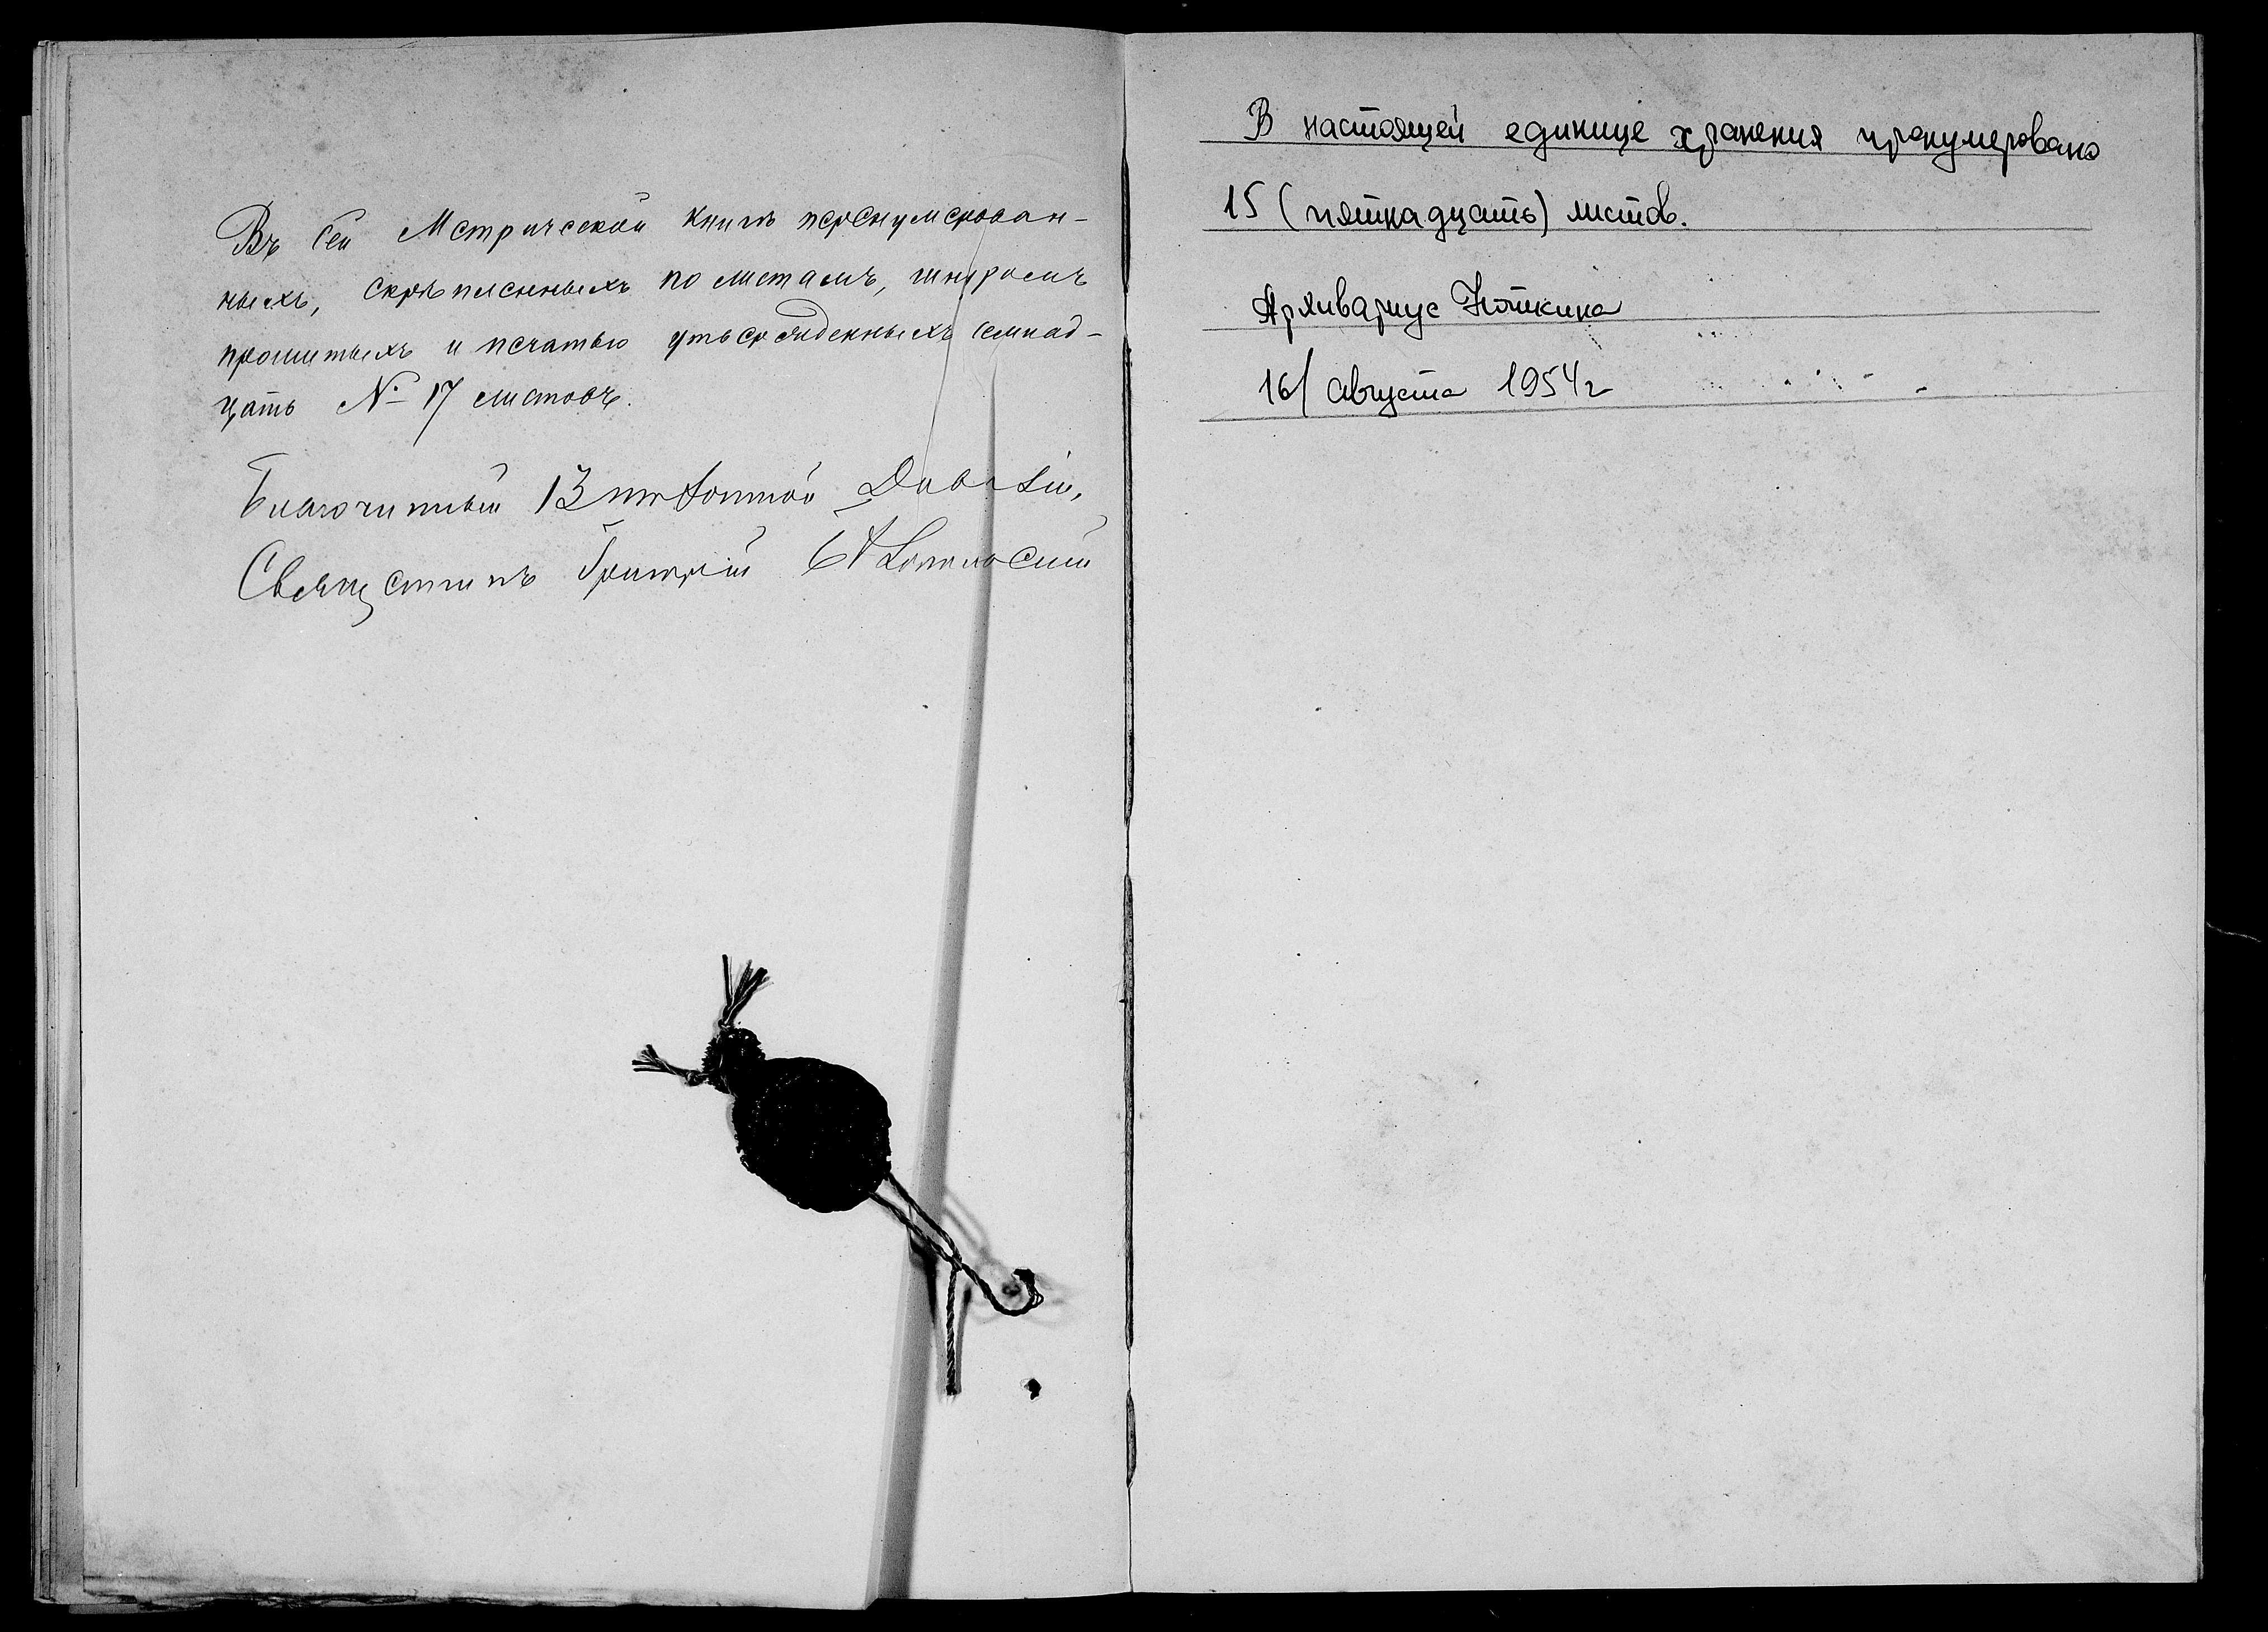 Въ сей Метрической книгѣ перенумерован-
ныхъ, скрѣпленныхъ по листамъ, шнуромъ
прошитыхъ и печатью утвержденныхъ семнад-
цать № 17 листовъ.
Благочинный 13
Священникъ Григорій
В настоящей единице хранения пронумеровано
15 (пятнадцать) листов.
Архивариус
16/ августа 1954 г